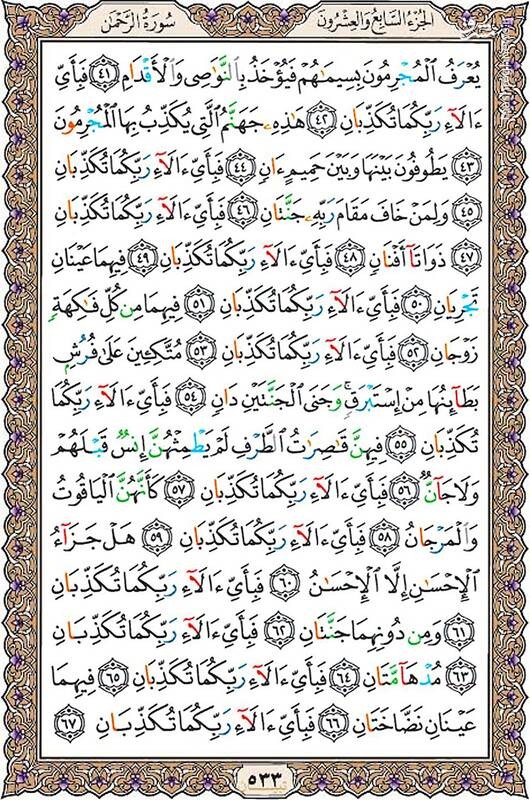 الجُزءُ السَّابِعُ وَالعِشْرُونَ
سُورَةُ الرَّحْمَن
يُعْرَفُ الْمُجْرِمُونَ بِسِيمَاهُمْ فَيُؤْخَذُ بِالنَّوَاصِي وَالْأَقْدَامِ ٤١ فَبِأَيِّ
ءَالَآءِ رَبِّكُمَا تُكَذِّبَانِ ٤٢ هَٰذِهِ جَهَنَّمُ الَّتِي يُكَذِّبُ بِهَا الْمُجْرِمُونَ
٤٣ يَطُوفُونَ بَيْنَهَا وَبَيْنَ حَمِيمٍ ءَانٍ ٤٤ فَبِأَيِّ ءَالَآءِ رَبِّكُمَا تُكَذِّبَانِ
٤٥ وَلِمَنْ خَافَ مَقَامَ رَبِّهِ جَنَّتَانِ ٤٦ فَبِأَيِّ ءَالَآءِ رَبِّكُمَا تُكَذِّبَانِ
٤٧ ذَوَاتَا أَفْنَانٍ ٤٨ فَبِأَيِّ ءَالَآءِ رَبِّكُمَا تُكَذِّبَانِ ٤٩ فِيهِمَا عَيْنَانِ
تَجْرِيَانِ ٥٠ فَبِأَيِّ ءَالَآءِ رَبِّكُمَا تُكَذِّبَانِ ٥١ فِيهِمَا مِن كُلِّ فَاكِهَةٍ
زَوْجَانِ ٥٢ فَبِأَيِّ ءَالَآءِ رَبِّكُمَا تُكَذِّبَانِ ٥٣ مُتَّكِئِينَ عَلَىٰ فُرُشٍ
بَطَآئِنُهَا مِنْ إِسْتَبْرَقٍ ۚ وَجَنَى الْجَنَّتَيْنِ دَانٍ ٥٤ فَبِأَيِّ ءَالَآءِ رَبِّكُمَا
تُكَذِّبَانِ ٥٥ فِيهِنَّ قَاصِرَاتُ الطَّرْفِ لَمْ يَطْمِثْهُنَّ إِنسٌ قَبْلَهُمْ
وَلَا جَآنٌّ ٥٦ فَبِأَيِّ ءَالَآءِ رَبِّكُمَا تُكَذِّبَانِ ٥٧ كَأَنَّهُنَّ الْيَاقُوتُ
وَالْمَرْجَانُ ٥٨ فَبِأَيِّ ءَالَآءِ رَبِّكُمَا تُكَذِّبَانِ ٥٩ هَلْ جَزَآءُ
الْإِحْسَٰنِ إِلَّا الْإِحْسَٰنُ ٦٠ فَبِأَيِّ ءَالَآءِ رَبِّكُمَا تُكَذِّبَانِ
٦١ وَمِن دُونِهِمَا جَنَّتَانِ ٦٢ فَبِأَيِّ ءَالَآءِ رَبِّكُمَا تُكَذِّبَانِ
٦٣ مُدْهَآمَّتَانِ ٦٤ فَبِأَيِّ ءَالَآءِ رَبِّكُمَا تُكَذِّبَانِ ٦٥ فِيهِمَا
عَيْنَانِ نَضَّاخَتَانِ ٦٦ فَبِأَيِّ ءَالَآءِ رَبِّكُمَا تُكَذِّبَانِ ٦٧
٥٣٣